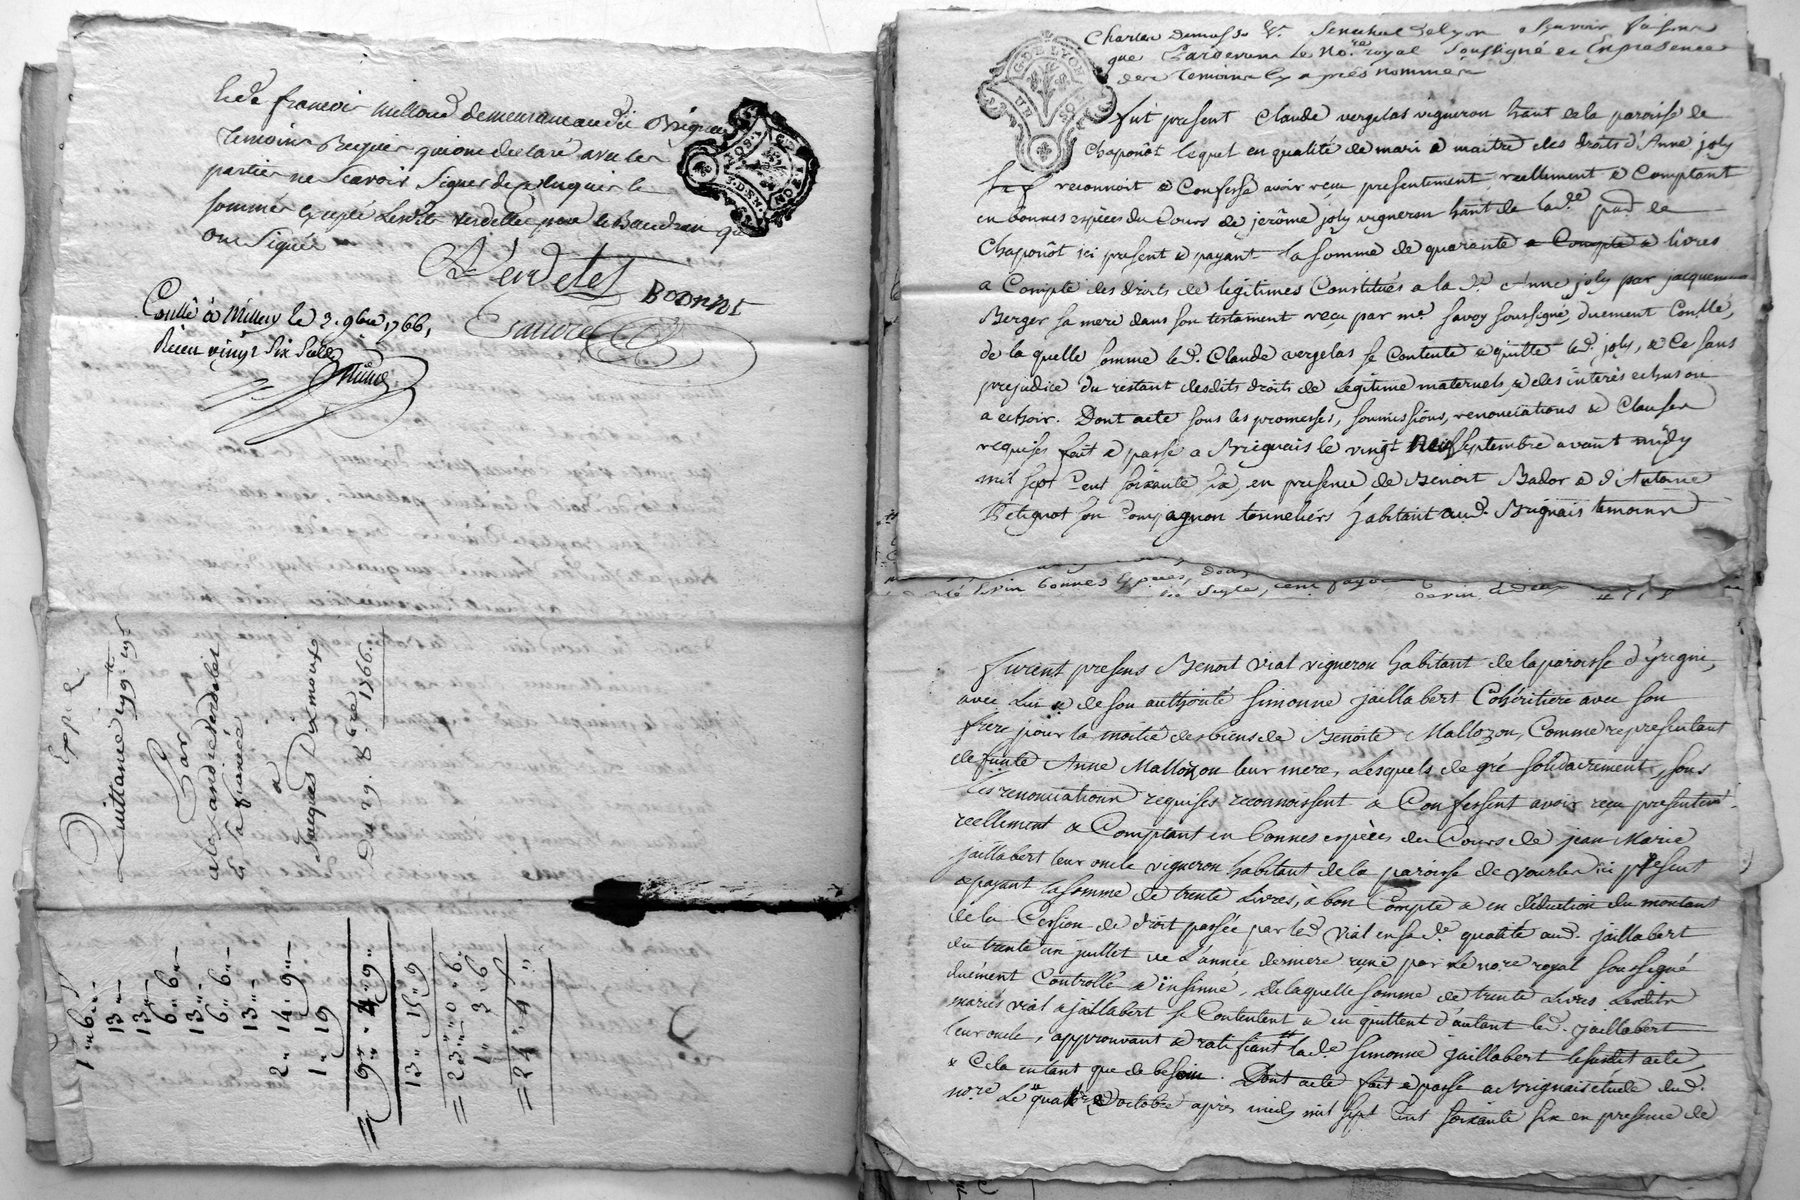 françois millond demeurant audit Brignais
temoins Requis qui ont declaré avec les
parties ne sçavoir signer de ce Enquis le
sommés excepté verdellet pere
ont signé
Verdelet
BOONNET
Conllé à Millery le 2. 9bre 1766,
Reçu vingt six sols
Expd.
Quittance
Par
alexandre Verdelet
à sa fiancée
à
Jacques Dixmoux
Du 29. 8bre 1766.
1 " 6 "
13 "
13 "
6 " 6 "
13 "
6 " 6 "
13 "
2 " 14 " 9 "
1 " 19
9 " 4 " 9 "
13 " 15 " 9
23 " 0 " 6
1 " 3 " 6
24 " 4 "
G. DE LYON
Charles Senechal de Lyon sçavoir faisons
que Pardevant le Nore royal soussigné et En presence
des temoins Cy après nommés
fut present Claude vergelas vigneron hant de la paroisse de
Chaponôt lequel en qualité de mari & maitre des droits d'Anne joly
sa f reconnoit & Confesse avoir reçu presentement, reellement & Comptant
en bonnes espèces du Cours de jerôme joly vigneron hant de lade parse de
Chaponôt ici present & payant la somme de quarante livres
a Compte des droits de légitimes Constitués a la de Anne joly par jacquemme
Berger sa mere dans son testament reçu par me savoy soussigné, duement Conllé,
de la quelle somme led. Claude vergelas se Contente & quitte led. joly, & Ce sans
prejudice du restant desdits droits de légitime maternels & des interes echus ou
a echoir. Dont acte sous les promesses, soumissions, renonciations & Clauses
requises fait & passé a Brignais le vingt Neuf septembre avant midy
mil sept Cent soixante six, en presence de Benoit Bador & d'Antoine
Petignot son compagnon tonneliers habitant aud. Brignais temoins
bonnes Especes,
furent presens Benoit Vial vigneron habitant de la paroisse d'yrigni,
avec Lui & de son authorité Simonne jaillabert Cohéritiere avec son
frere pour la moitié des biens de Benoite Mallozon, Comme representant
defunte Anne Mallozon leur mere, Lesquels de gré solidairement, sous
Les renonciations requises reconnoissent & Confessent avoir reçu presentemt.
reellement & Comptant en bonnes espèces du Cours de jean Marie
jaillabert leur oncle vigneron habitant de la paroisse de vourles ici present
& payant la somme de trente Livres, à bon Compte & en déduction du montant
de la Cession de droit passée par led. Vial en sa de. qualité aud. jaillabert
du trente un juillet de L'année derniere reçue par Le nore royal soussigné
duement Controllé & insinué, de laquelle somme de trente Livres Lesdits
mariés vial & jaillabert se Contentent & en quittent d'autant led. jaillabert
leur oncle, approuvant & ratifiant lade Simonne jaillabert lesusdit acte,
& Cela en tant que de besoin. Dont acte fait & passé a Brignais étude dud.
nore Le quatre d'octobre après midy mil sept cent soixante six en presence de